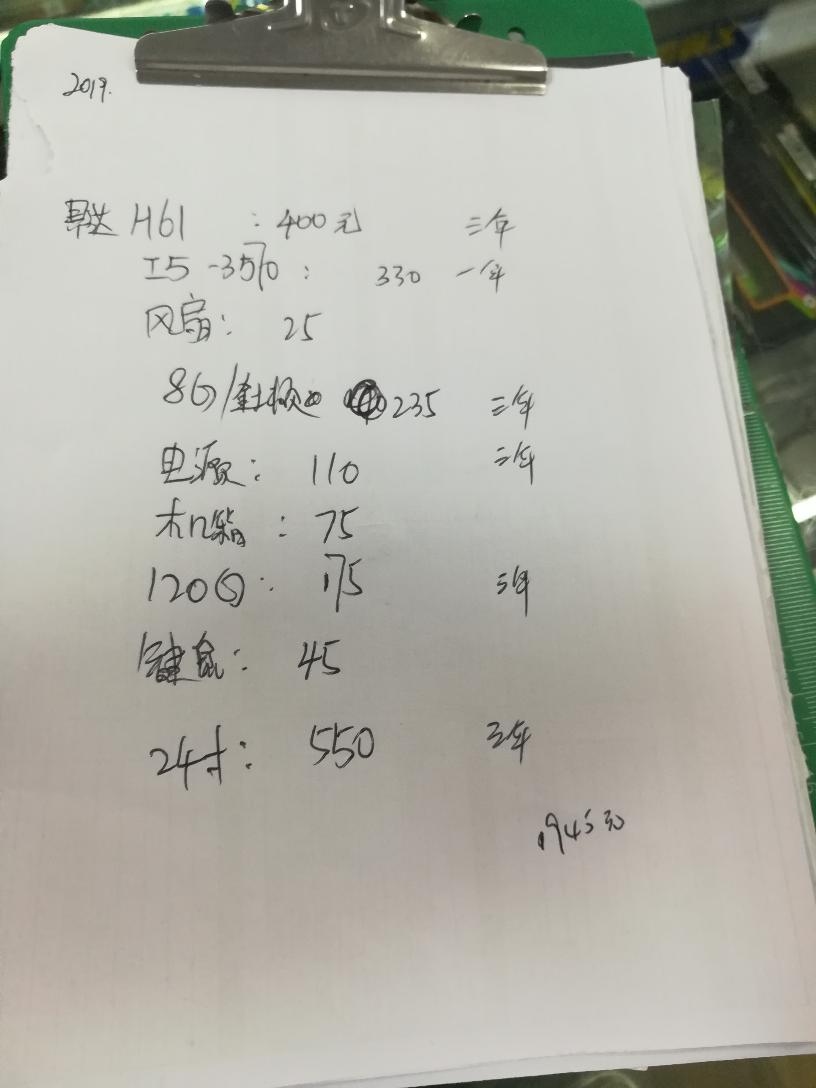 2019.
H61 : 400元 三年
I5-3570 : 330 一年
风扇: 25
8G/ 235 三年
电源: 110 三年
木几箱: 75
120G: 175 三年
键鼠: 45
24寸: 550 三年
1945元